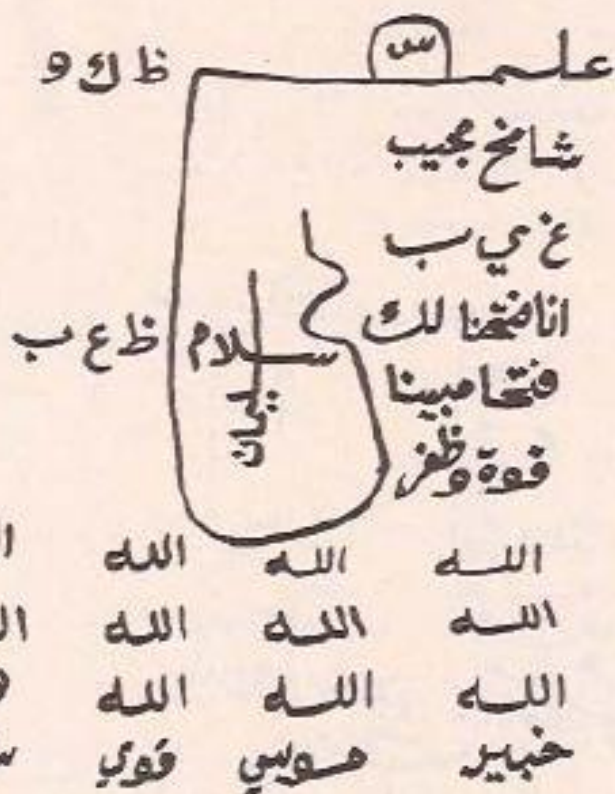 علم س ظ ك و
شامخ مجيب
غ ي ب
انا فتحنا لك
فتحا مبينا
سلام ظ ع ب
قوة وظفر
الله الله الله
الله الله الله
الله الله الله
خبير موسي قوي